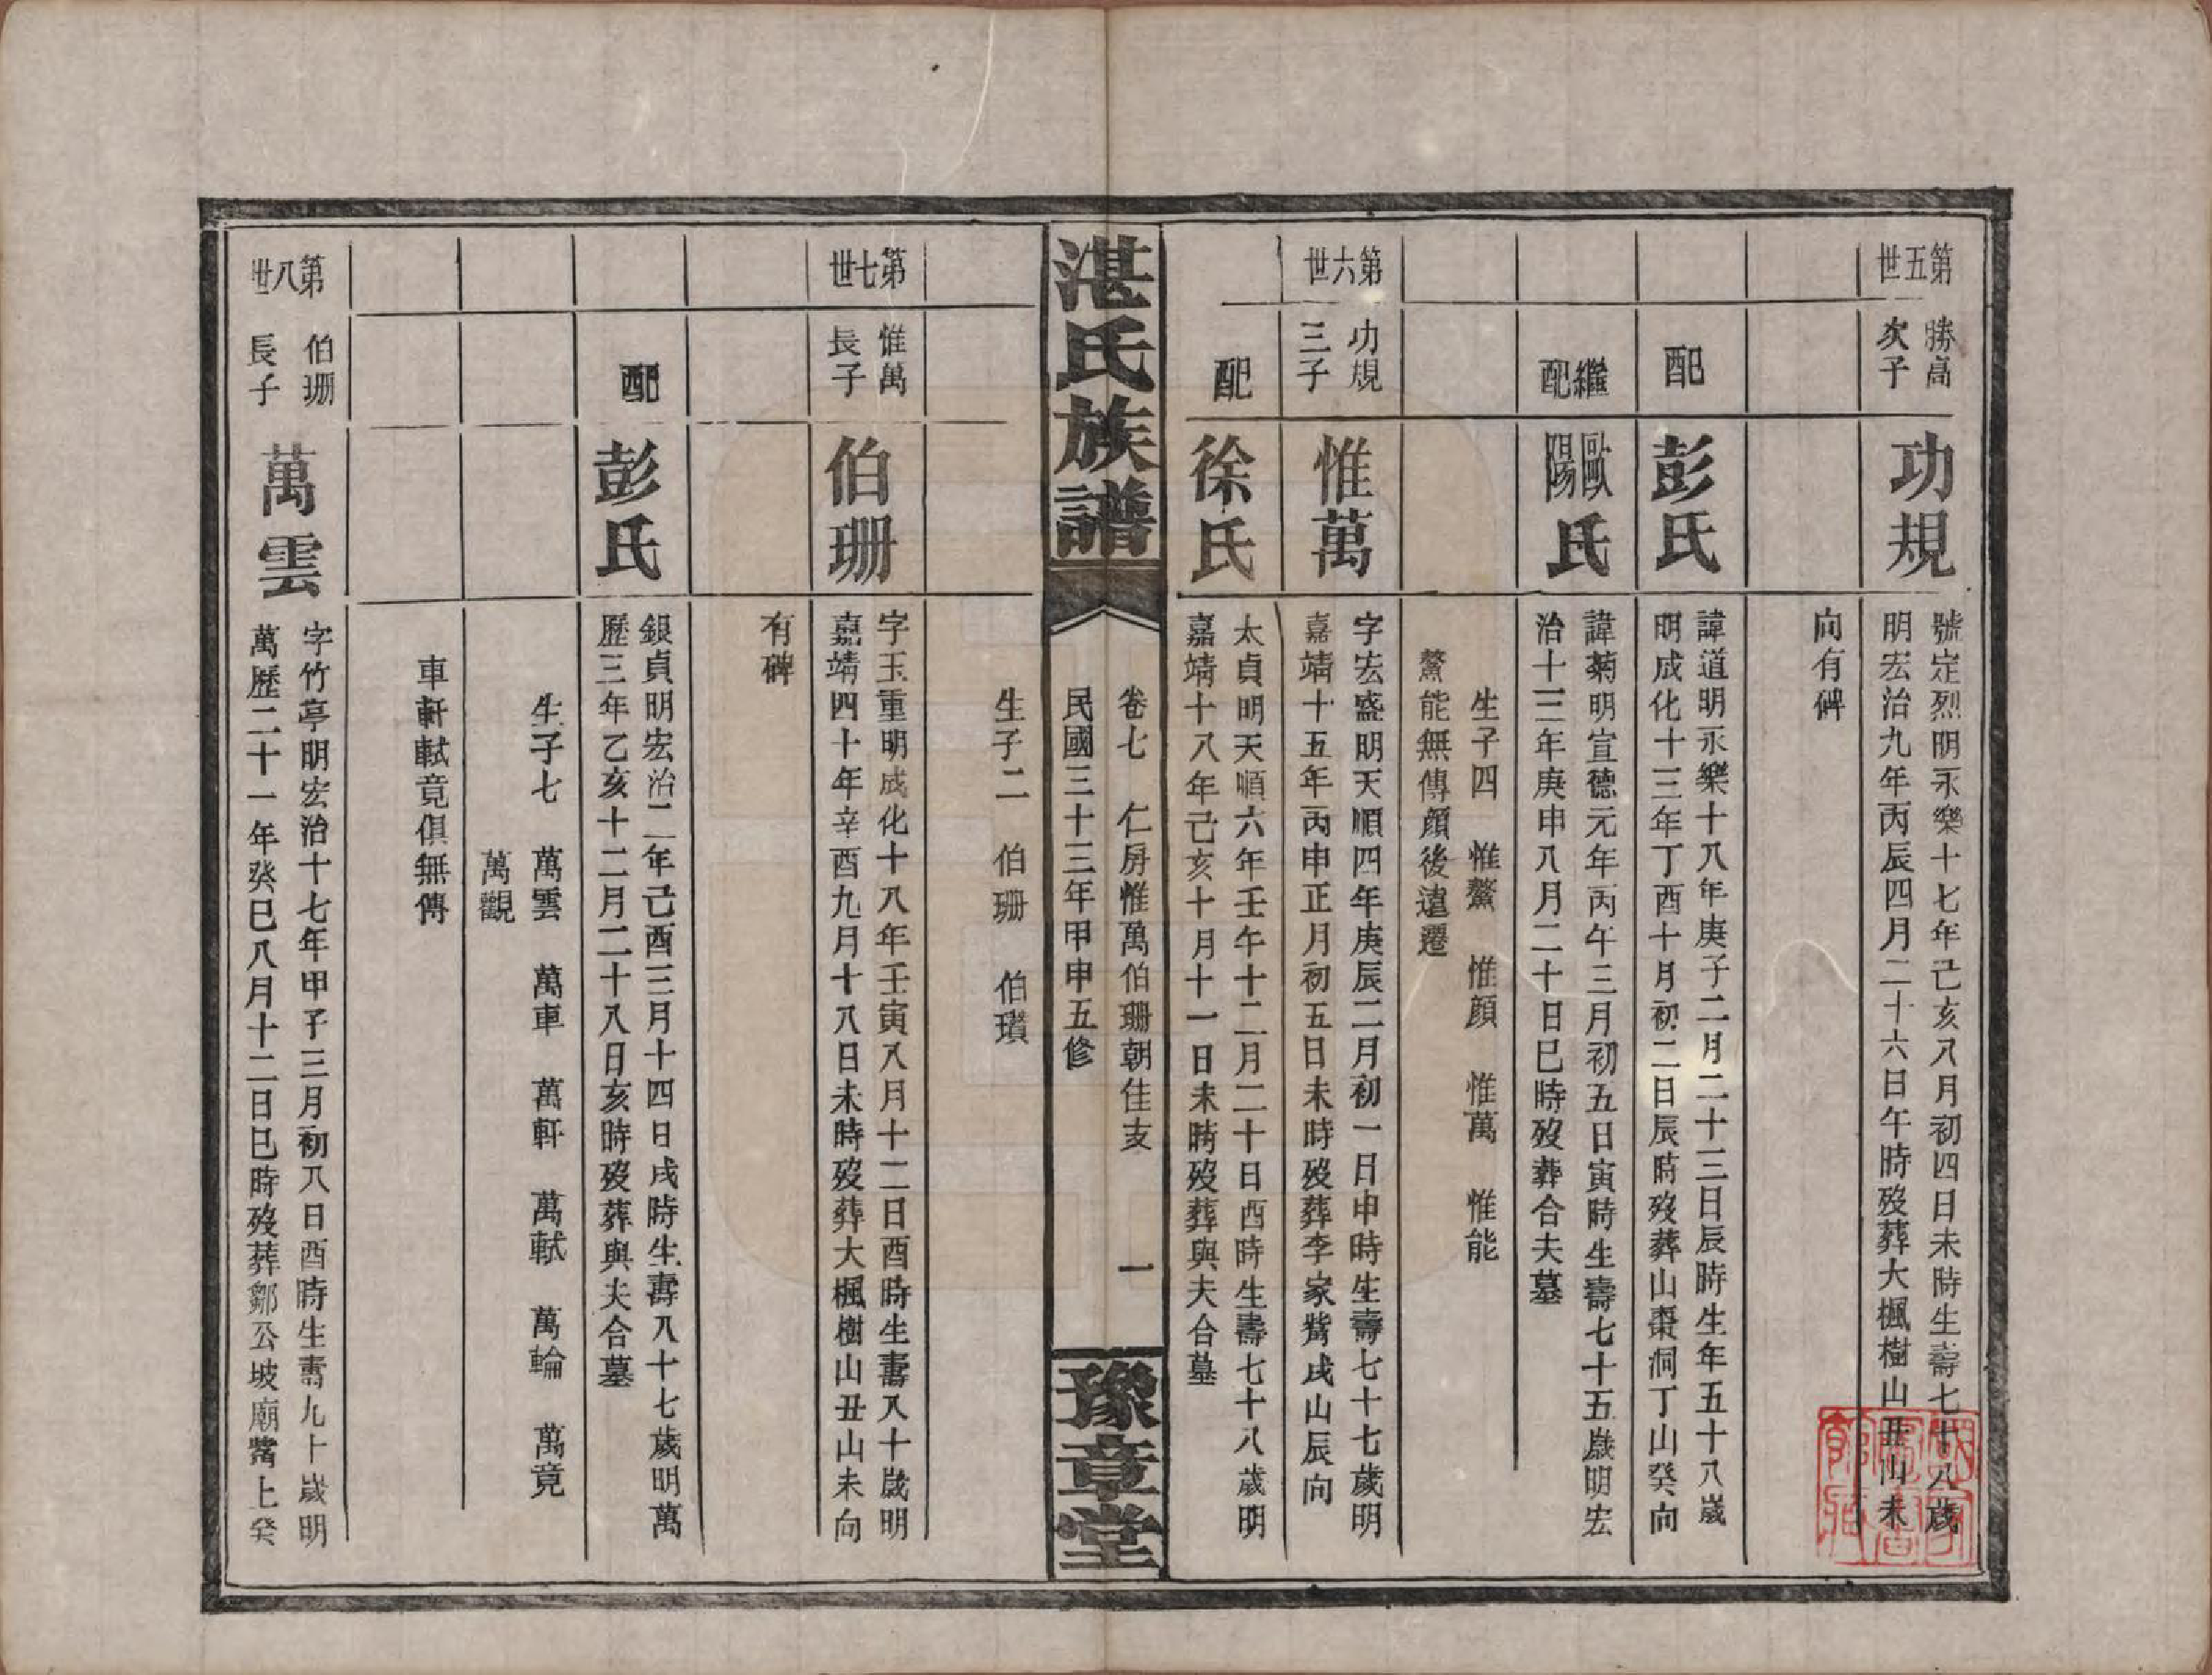 第五世
勝高
次子
功規
號定烈明永樂十七年己亥八月初四日未時生壽七十八歲
明宏治九年丙辰四月二十六日午時歿葬大楓樹山丑山未
向有碑
配
彭氏
諱道明永樂十八年庚子二月二十三日辰時生年五十八歲
明成化十三年丁酉十月初二日辰時歿葬山棗洞丁山癸向
繼配
歐陽氏
諱菊明宣德元年丙午三月初五日寅時生壽七十五歲明宏
治十三年庚申八月二十日巳時歿葬合夫墓
生子四　惟鰲　惟顔　惟萬　惟能
鰲能無傳顔後遠遷
第六世
功規
三子
惟萬
字宏盛明天順四年庚辰二月初一日申時生壽七十七歲明
嘉靖十五年丙申正月初五日未時歿葬李家嘴戌山辰向
配
徐氏
太貞明天順六年壬午十二月二十日酉時生壽七十八歲明
嘉靖十八年己亥十月十一日未時歿葬與夫合墓
湛氏族譜
卷七　仁房惟萬伯珊朝佳支　一
民國三十三年甲申五修
豫章堂
生子二　伯珊　伯瓚
第七世
惟萬
長子
伯珊
字玉重明成化十八年壬寅八月十二日酉時生壽八十歲明
嘉靖四十年辛酉九月十八日未時歿葬大楓樹山丑山未向
有碑
配
彭氏
銀貞明宏治二年己酉三月十四日戌時生壽八十七歲明萬
歷三年乙亥十二月二十八日亥時歿葬與夫合墓
生子七　萬雲　萬車　萬軒　萬軾　萬輪　萬竟
萬觀
車軒軾竟俱無傳
第八世
伯珊
長子
萬雲
字竹亭明宏治十七年甲子三月初八日酉時生壽九十歲明
萬歷二十一年癸巳八月十二日巳時歿葬鄒公坡廟嘴上癸